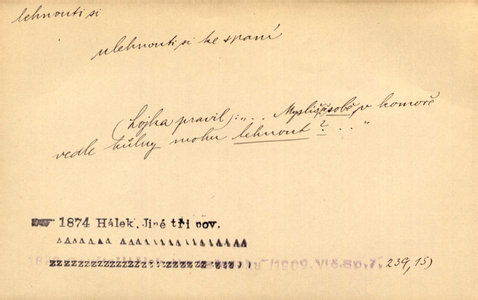 lehnouti si
ulehnouti si ke spaní
(Lojka pravil): „.. Myslíš, že sobě v komoře
vedle kůlny mohu lehnout? ..."
1874 Hálek, Jiné tři nov.
239,15)